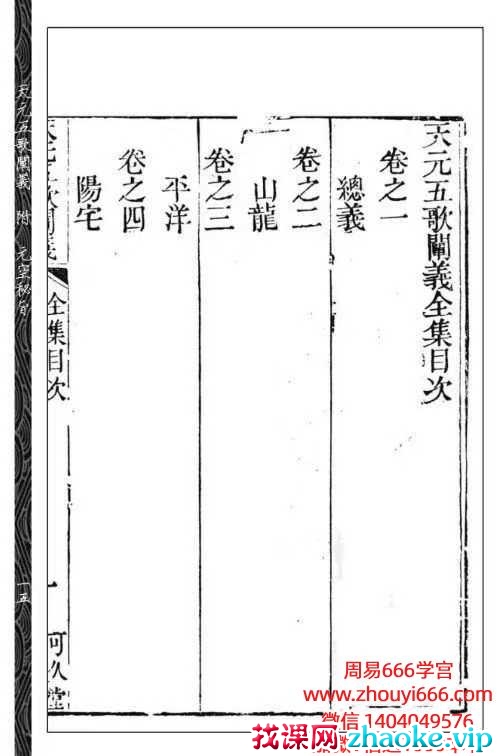 天元五歌闡義全集目次
卷之一
總義
卷之二
山龍
卷之三
平洋
卷之四
陽宅
天元五歌闡義
全集目次
一
可久堂
天元五歌闡義 附 元空秘旨
一五
周易666学宫
www.zhouyi666.com
微信 1404049576
找课网zhaoke.vip